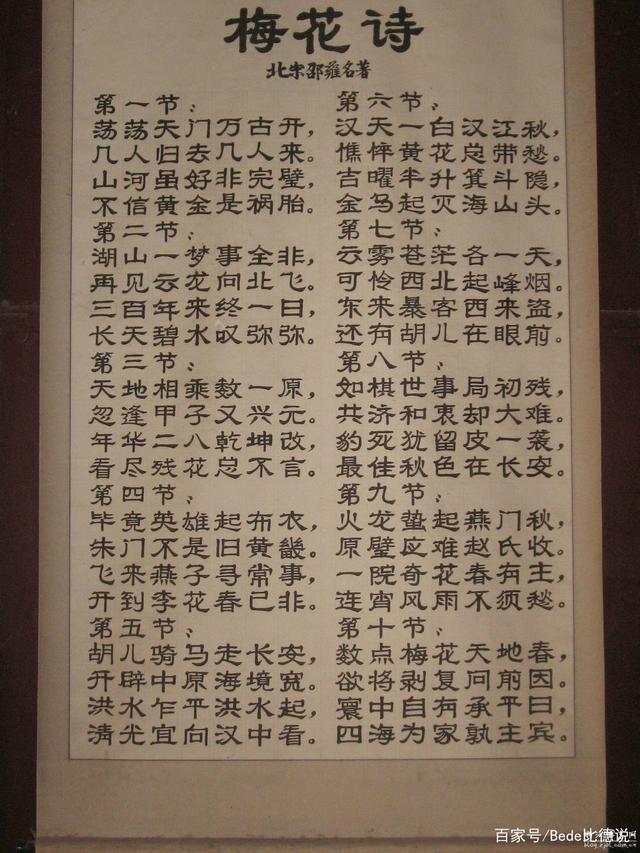 梅花诗
北宋邵雍名著
第一节：
荡荡天门万古开，
几人归去几人来。
山河虽好非完璧，
不信黄金是祸胎。
第二节：
湖山一梦事全非，
再见云龙向北飞。
三百年来终一日，
长天碧水叹弥弥。
第三节：
天地相乘数一原，
忽逢甲子又兴元。
年华二八乾坤改，
看尽残花总不言。
第四节：
毕竟英雄起布衣，
朱门不是旧黄畿。
飞来燕子寻常事，
开到李花春已非。
第五节：
胡儿骑马走长安，
开辟中原海境宽。
洪水乍平洪水起，
清光宜向汉中看。
第六节：
汉天一白汉江秋，
憔悴黄花总带愁。
吉曜半升箕斗隐，
金乌起灭海山头。
第七节：
云雾苍茫各一天，
可怜西北起峰烟。
东来暴客西来盗，
还有胡儿在眼前。
第八节：
如棋世事局初残，
共济和衷却大难。
豹死犹留皮一袭，
最佳秋色在长安。
第九节：
火龙蛰起燕门秋，
原璧应难赵氏收。
一院奇花春有主，
连宵风雨不须愁。
第十节：
数点梅花天地春，
欲将剥复问前因。
寰中自有承平日，
四海为家孰主宾。
百家号/Bede比德说
blog.zjol.com.cn